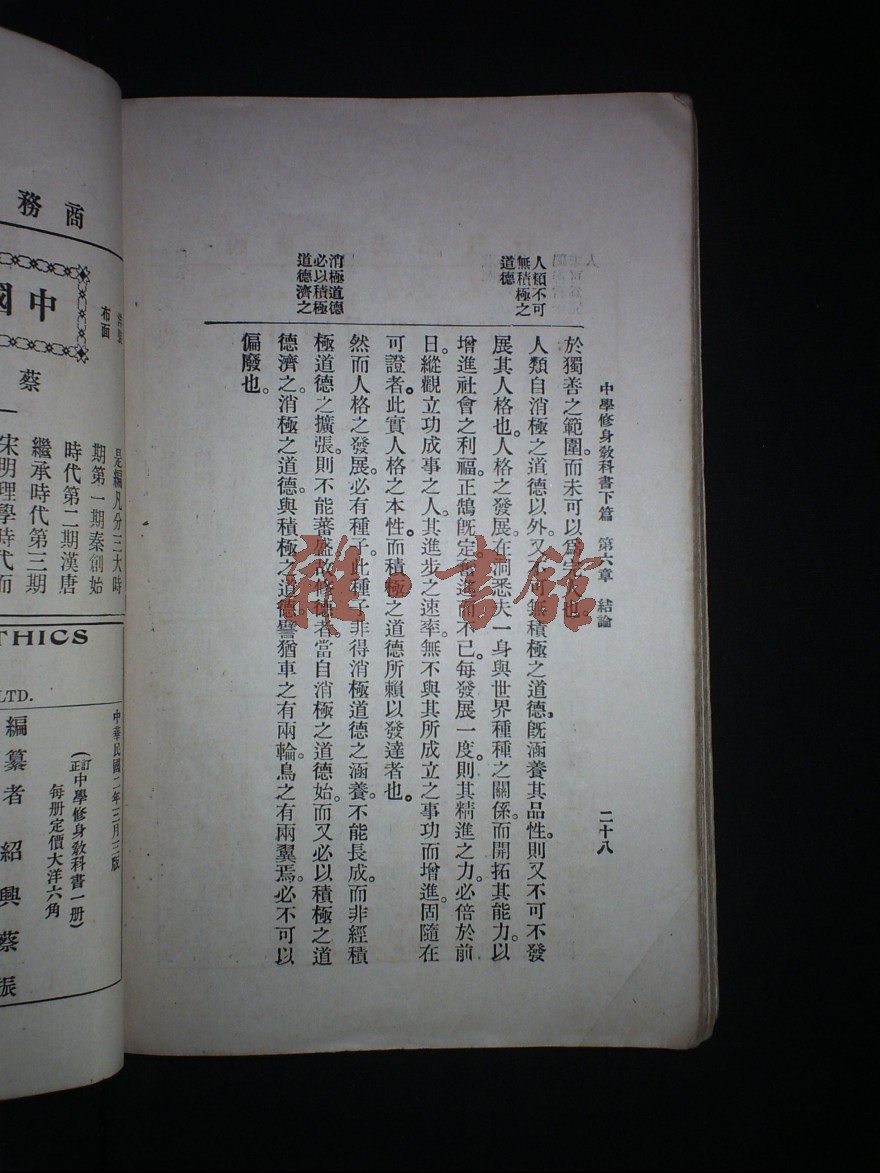 中學修身教科書下篇 第六章 結論
二十八
人類不可
無積極之
道德
消極道德
必以積極
道德濟之
於獨善之範圍。而未可以爲完人也。
人類自消極之道德以外。又不可無積極之道德。既涵養其品性。則又不可不發
展其人格也。人格之發展。在洞悉夫一身與世界種種之關係。而開拓其能力。以
增進社會之利福。正鵠既定。奮進而不已。每發展一度。則其精進之力。必倍於前
日。縱觀立功成事之人。其進步之速率。無不與其所成立之事功而增進。固隨在
可證者。此實人格之本性。而積極之道德所賴以發達者也。
然而人格之發展。必有種子。此種子非得消極道德之涵養。不能長成。而非經積
極道德之擴張。則不能蕃盛。故修德者當自消極之道德始。而又必以積極之道
德濟之。消極之道德。與積極之道德。譬猶車之有兩輪。鳥之有兩翼焉。必不可以
偏廢也。
商務
布面
中國
蔡
一
是編凡分三大時
期第一期秦創始
時代第二期漢唐
繼承時代第三期
宋明理學時代而
THICS
LTD.
中華民國二年三月三版
(訂正中學修身教科書一册)
每册定價大洋六角
編纂者 紹興蔡振
雜·書館